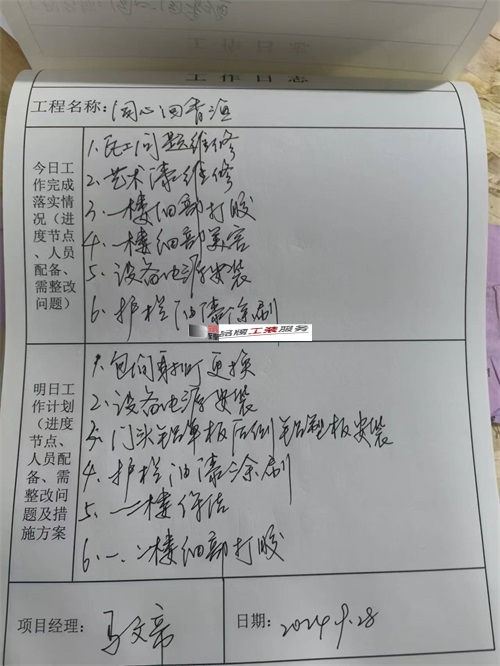 工作日志
工作日志
工程名称: 同心回香渔
今日工作完成落实情况（进度节点、人员配备、需整改问题）
1、瓦工问题维修
2、艺术漆维修
3、一楼细部打胶
4、一楼细部美容
5、设备电源安装
6、护栏油漆涂刷
品牌工装服务
明日工作计划（进度节点、人员配备、需整改问题及措施方案
1、包间射灯更换
2、设备电源安装
3、门头铝单板后侧铝塑板安装
4、护栏油漆涂刷
5、一二楼保洁
6、一、二楼细部打胶
项目经理: 马文
日期: 2024.9.28